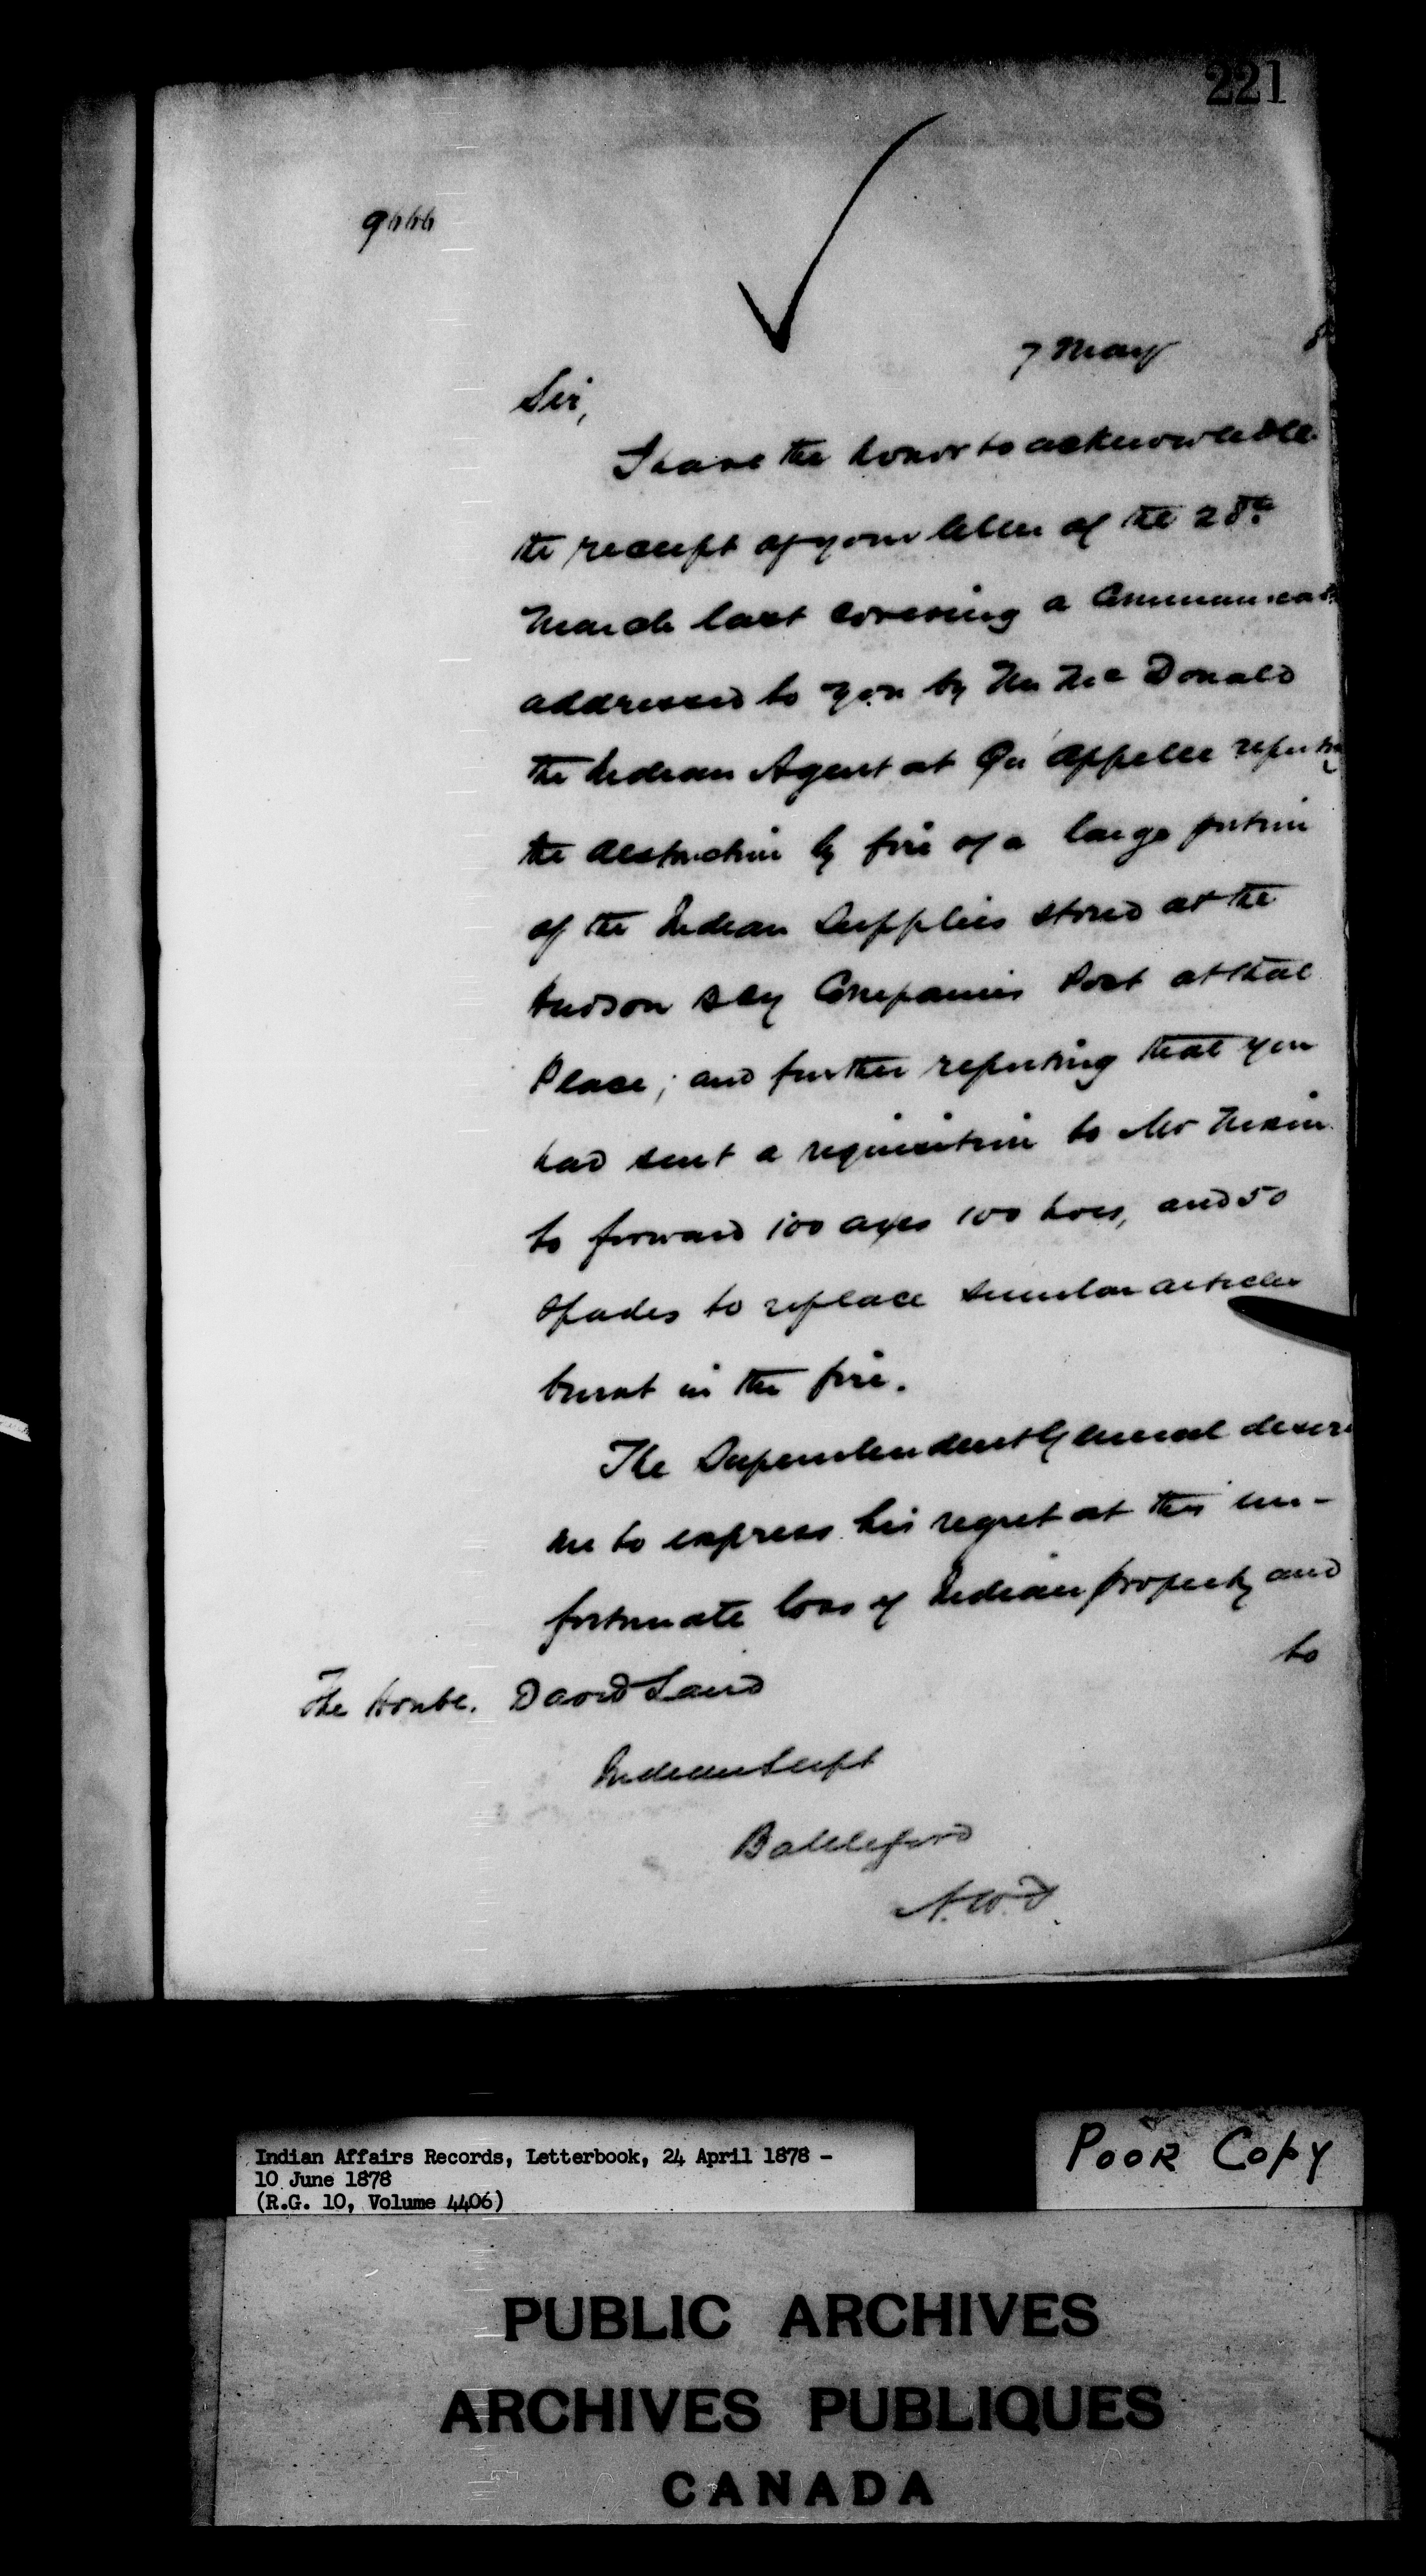 221
9666
7 May 8
Sir,
I have the honor to acknowledge
the receipt of your letter of the 28th
March last covering a Communicat
addressed to you by Mr McDonald
the Indian Agent at Qu'Appelle reporting
the destruction by fire of a large portion
of the Indian Supplies stored at the
Hudson Bay Companies Post at that
Place; and further reporting that you
had sent a requisition to Mr Nixon
to forward 100 axes 100 hoes, and 50
Spades to replace similar articles
burnt in the fire.
The Superintendent General desires
me to express his regret at this un-
fortunate loss of Indian property and
to
The Honble. David Laird
Indian Supt
Battleford
N.W.T.
Indian Affairs Records, Letterbook, 24 April 1878 -
10 June 1878
(R.G. 10, Volume 4406)
Poor Copy
PUBLIC ARCHIVES
ARCHIVES PUBLIQUES
CANADA